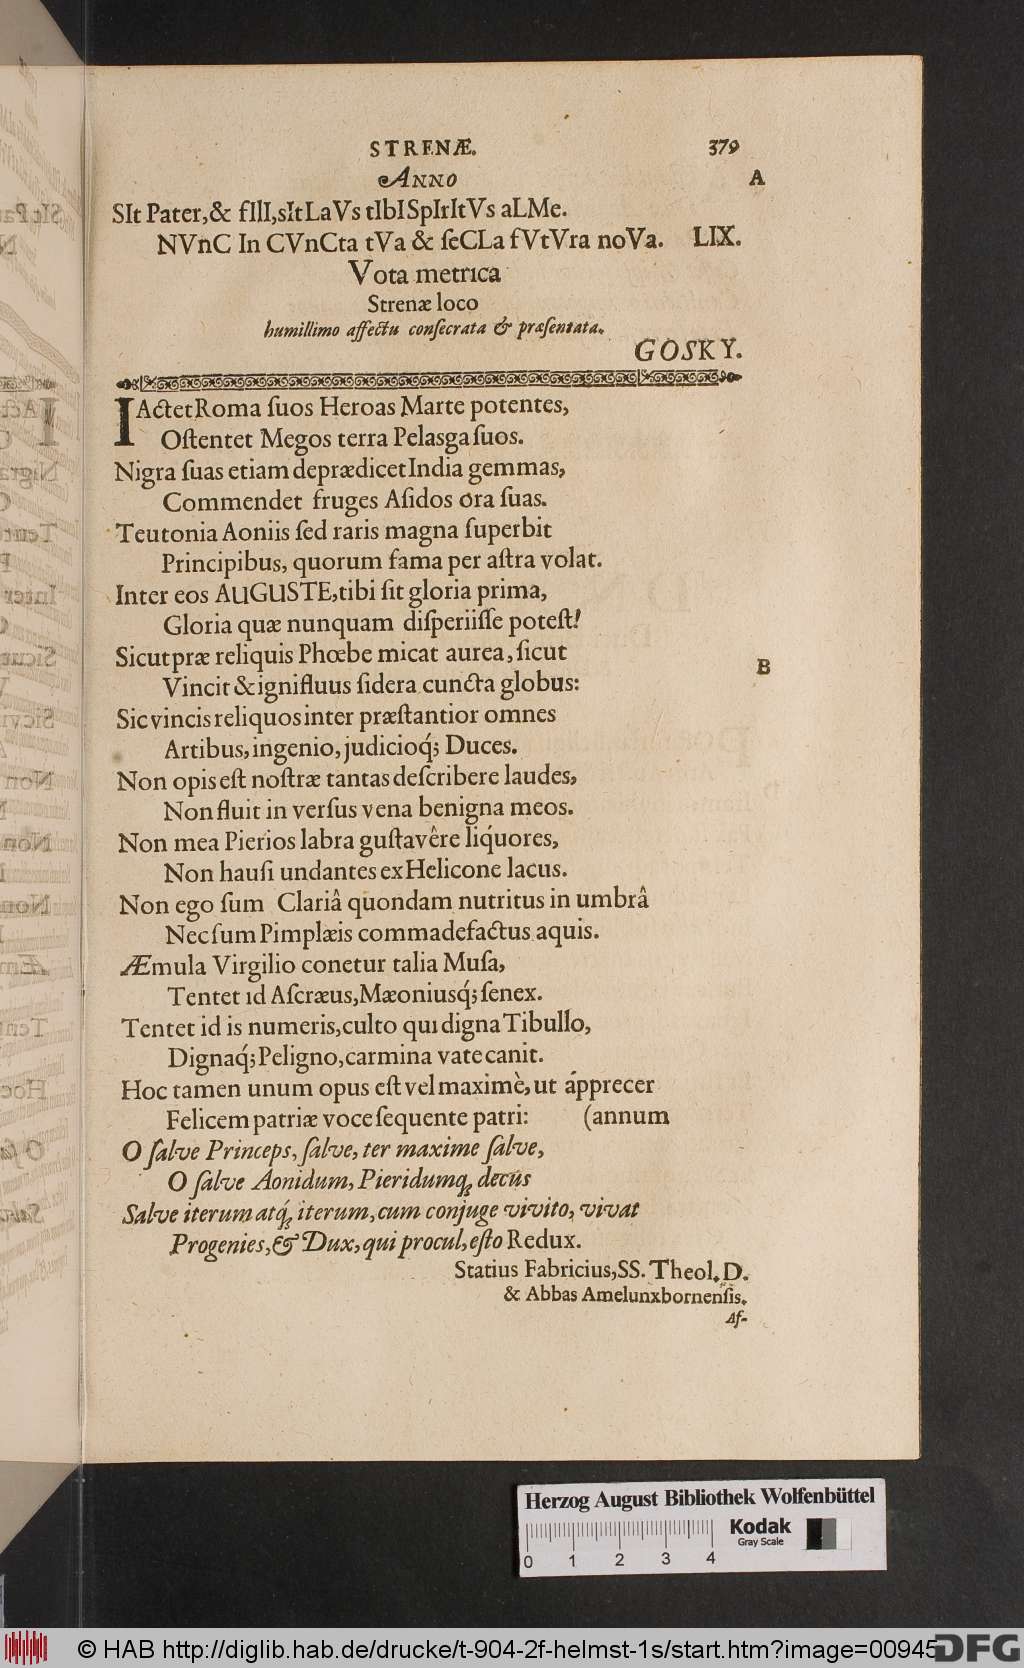 STRENÆ. 379
ANNO A
SIt Pater,& fIlI,sItLaVs tIbISpIrItVs aLMe.
NVnC In CVnCta tVa & ſeCLa fVtVra noVa. LIX.
Vota metrica
Strenæ loco
humillimo affectu conſecrata & præſentata.
GOSKY.
IActetRoma ſuos Heroas Marte potentes,
Oſtentet Megos terra Pelasga ſuos.
Nigra ſuas etiam deprædicet India gemmas,
Commendet fruges Aſidos ora ſuas.
Teutonia Aoniis ſed raris magna ſuperbit
Principibus, quorum fama per aſtra volat.
Inter eos AUGUSTE,tibi ſit gloria prima,
Gloria quæ nunquam diſperiiſſe poteſt!
Sicut præ reliquis Phœbe micat aurea, ſicut
Vincit & ignifluus ſidera cuncta globus:
Sic vincis reliquos inter præſtantior omnes
Artibus, ingenio, judicioq́; Duces.
Non opis eſt noſtræ tantas deſcribere laudes,
Non fluit in verſus vena benigna meos.
Non mea Pierios labra guſtavêre liquores,
Non hauſi undantes ex Helicone lacus.
Non ego ſum Clariâ quondam nutritus in umbrâ
Nec ſum Pimplæis commadefactus aquis.
Æmula Virgilio conetur talia Muſa,
Tentet id Aſcræus, Mæoniusq́; ſenex.
Tentet id is numeris, culto qui digna Tibullo,
Dignaq́; Peligno, carmina vate canit.
Hoc tamen unum opus eſt vel maximè, ut ápprecer
Felicem patriæ voce ſequente patri: (annum
O ſalve Princeps, ſalve, ter maxime ſalve,
O ſalve Aonidum, Pieridumq; decus
Salve iterum atq́; iterum, cum conjuge vivito, vivat
Progenies, & Dux, qui procul, eſto Redux.
B
Statius Fabricius, SS. Theol. D.
& Abbas Amelunxbornenſis.
Af-
Herzog August Bibliothek Wolfenbüttel
Kodak
Gray Scale
0 1 2 3 4
© HAB http://diglib.hab.de/drucke/t-904-2f-helmst-1s/start.htm?image=00945
DFG